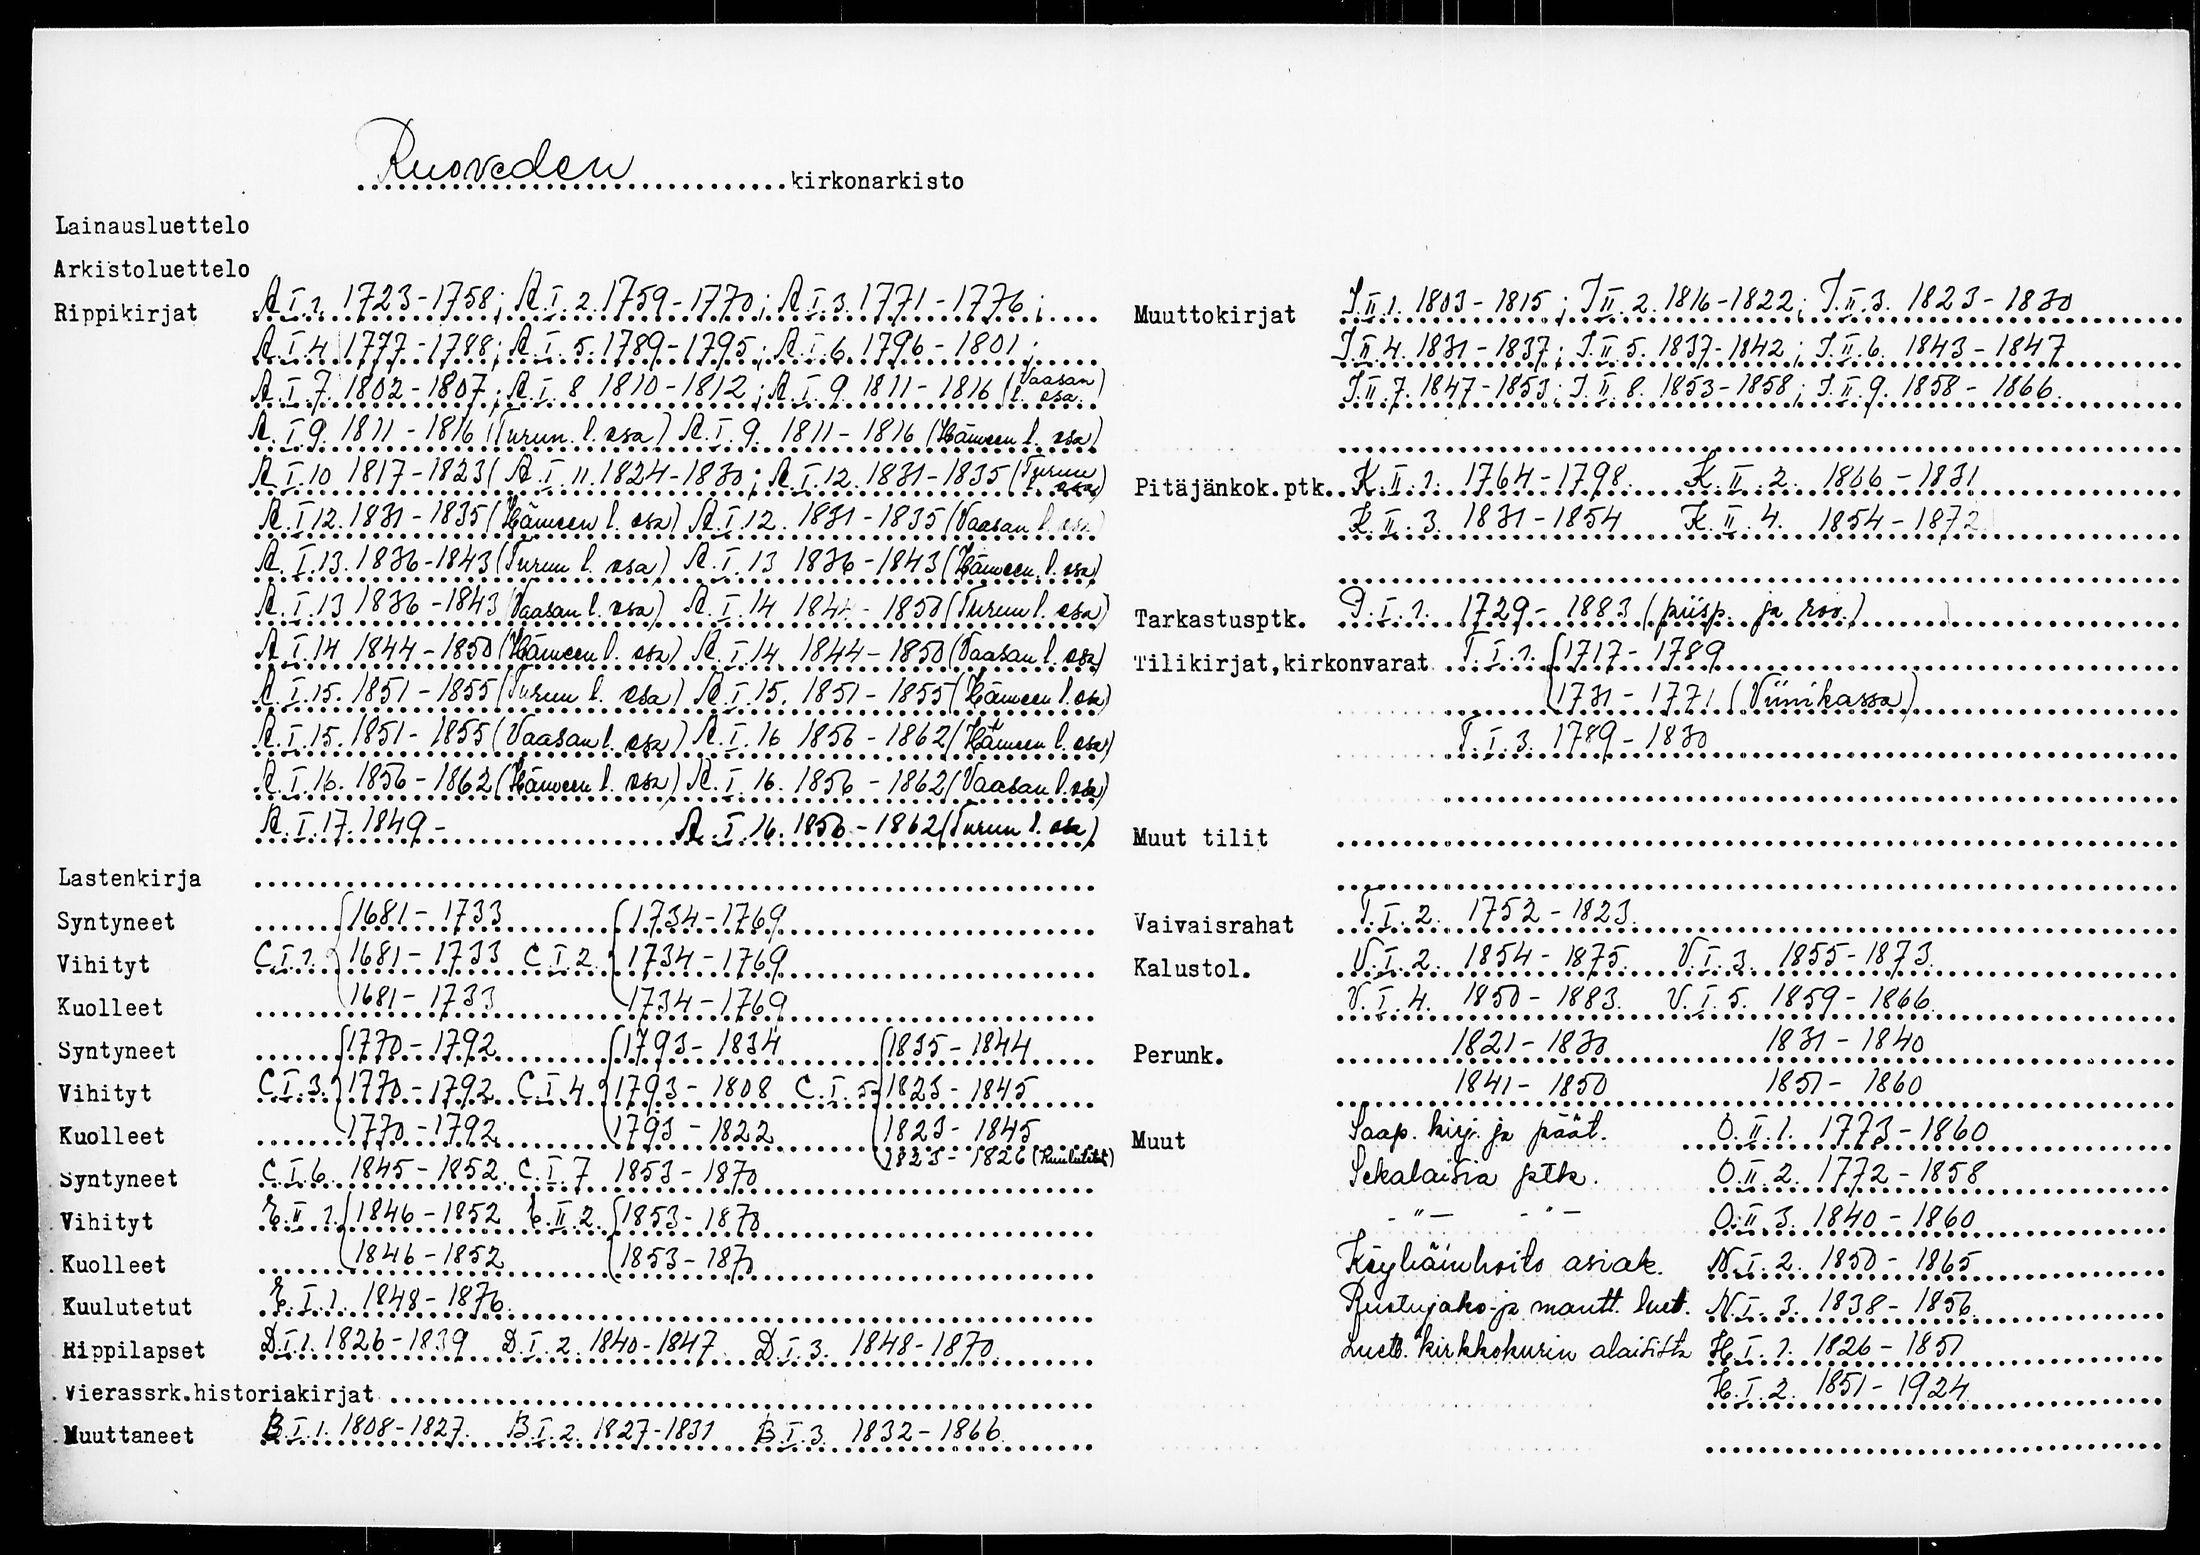 Ruoveden kirkonarkisto
Lainausluettelo
Arkistoluettelo
Rippikirjat A.I.1. 1723-1758; A.I.2. 1759-1770; A.I.3. 1771-1776;
A.I.4 1777-1788; A.I.5. 1789-1795; A.I.6. 1796-1801;
A.I.7. 1802-1807; A.I.8 1810-1812; A.I.9. 1811-1816 (Vaasan l. osa)
A.I.9. 1811-1816 (Turun l. osa) A.I.9. 1811-1816 (Hämeen l. osa)
A.I.10 1817-1823( A.I.11. 1824-1830; A.I.12. 1831-1835 (Turun osa)
A.I.12. 1831-1835 (Hämeen l. osa) A.I.12. 1831-1835 (Vaasan l. osa)
A.I.13. 1836-1843 (Turun l. osa) A.I.13 1836-1843 (Hämeen l. osa)
A.I.13 1836-1843 (Vaasan l. osa) A.I.14 1844-1850 (Turun l. osa)
A.I.14 1844-1850 (Hämeen l. osa) A.I.14. 1844-1850 (Vaasan l. osa)
A.I.15. 1851-1855 (Turun l. osa) A.I.15. 1851-1855 (Hämeen l. osa)
A.I.15. 1851-1855 (Vaasan l. osa) A.I.16 1856-1862 (Hämeen l. osa)
A.I.16. 1856-1862 (Hämeen l. osa) A.I.16. 1856-1862 (Vaasan l. osa)
A.I.17. 1849- A.I.16. 1856-1862 (Turun l. osa)
Lastenkirja
Syntyneet 1681-1733 1734-1769
Vihityt C.I.1. 1681-1733 C.I.2. 1734-1769
Kuolleet 1681-1733 1734-1769
Syntyneet 1770-1792 1793-1834 1835-1844
Vihityt C.I.3. 1770-1792 C.I.4. 1793-1808 C.I.5. 1823-1845
Kuolleet 1770-1792 1793-1822 1823-1845
1823-1826 (Kuulutetut)
Syntyneet C.I.6. 1845-1852. C.I.7 1853-1870
Vihityt E.II.1. 1846-1852 E.II.2. 1853-1870
Kuolleet 1846-1852 1853-1870
Kuulutetut E.I.1. 1848-1876.
Rippilapset D.I.1. 1826-1839 D.I.2. 1840-1847 D.I.3. 1848-1870.
Vierassrk.historiakirjat
Muuttaneet B.I.1. 1808-1827. B.I.2. 1827-1831 B.I.3. 1832-1866.
Muuttokirjat J.II.1. 1803-1815; J.II.2. 1816-1822; J.II.3. 1823-1830
J.II.4. 1831-1837; J.II.5. 1837-1842; J.II.6. 1843-1847
J.II.7. 1847-1853; J.II.8. 1853-1858; J.II.9. 1858-1866.
Pitäjänkok.ptk. K.II.1. 1764-1798. K.II.2. 1866-1831
K.II.3. 1831-1854 K.II.4. 1854-1872
Tarkastusptk. P.I.1. 1729-1883 (piisp. ja rov.)
Tilikirjat,kirkonvarat T.I.1. 1717-1789
1731-1771 (Viinikassa)
T.I.3. 1789-1830
Muut tilit
Vaivaisrahat T.I.2. 1752-1823.
Kalustol. V.I.2. 1854-1875. V.I.3. 1855-1873.
V.I.4. 1850-1883. V.I.5. 1859-1866.
Perunk. 1821-1830 1831-1840
1841-1850 1851-1860
Muut Saap. kirj. ja päät. O.II.1. 1773-1860
Sekalaisia ptk. O.II.2. 1772-1858
-"- -"- O.II.3. 1840-1860
Köyhäinhoito asiak. N.I.2. 1850-1865
Ruotujako-ja mantt. luet. N.I.3. 1838-1856.
Luett. kirkkokurin alaisista H.I.1. 1826-1851
H.I.2. 1851-1924